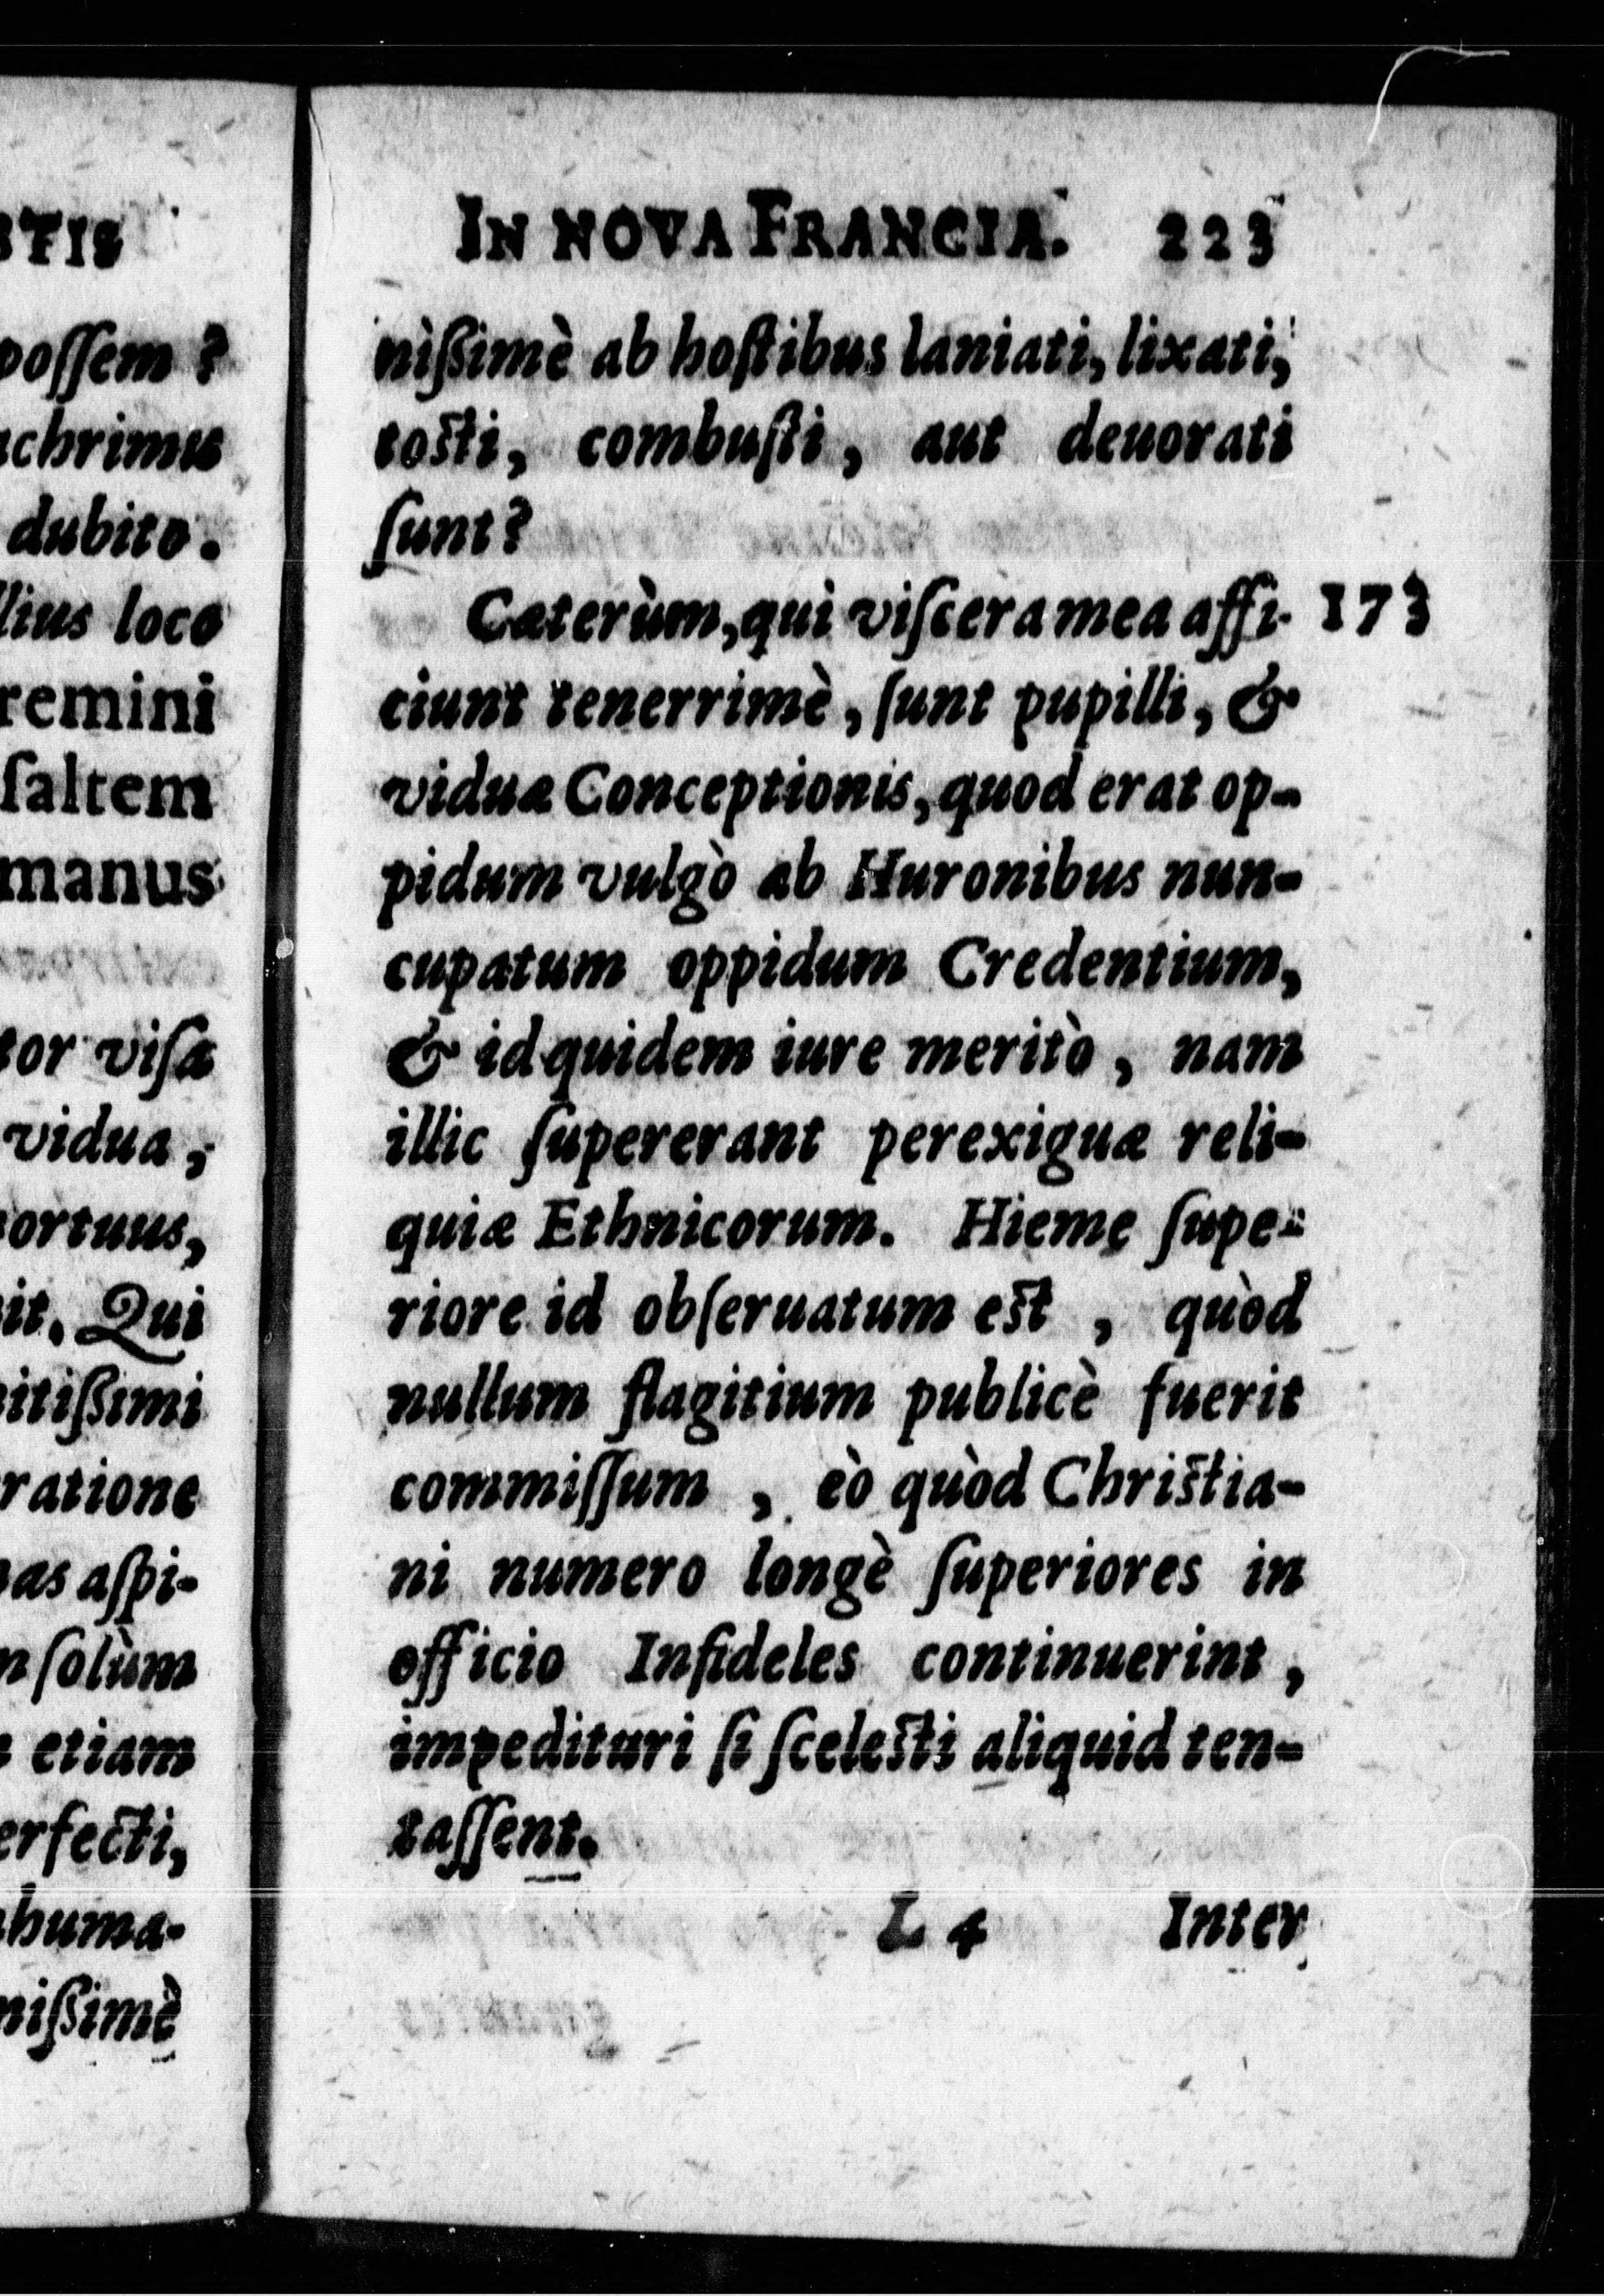 STIS
possem ?
achrimis
dubito.
llius loco
remini
saltem
manus
tor visa
vidua,
ortuus,
it. Qui
itißimi
ratione
nas aspi-
n solùm
etiam
erfecti,
huma-
nißimè
IN NOVA FRANCIA. 223
nißimè ab hostibus laniati, lixati,
tosti, combusti, aut deuorati
sunt?
Cæterùm, qui viscera mea affi- 173
ciunt tenerrimè, sunt pupilli, &
viduæ Conceptionis, quod erat op-
pidum vulgò ab Huronibus nun-
cupatum oppidum Credentium,
& id quidem iure meritò, nam
illic supererant perexiguæ reli-
quiæ Ethnicorum. Hieme supe-
riore id obseruatum est, quòd
nullum flagitium publicè fuerit
commissum, eò quòd Christia-
ni numero longè superiores in
officio Infideles continuerint,
impedituri si scelesti aliquid ten-
tassent.
L 4 Inter